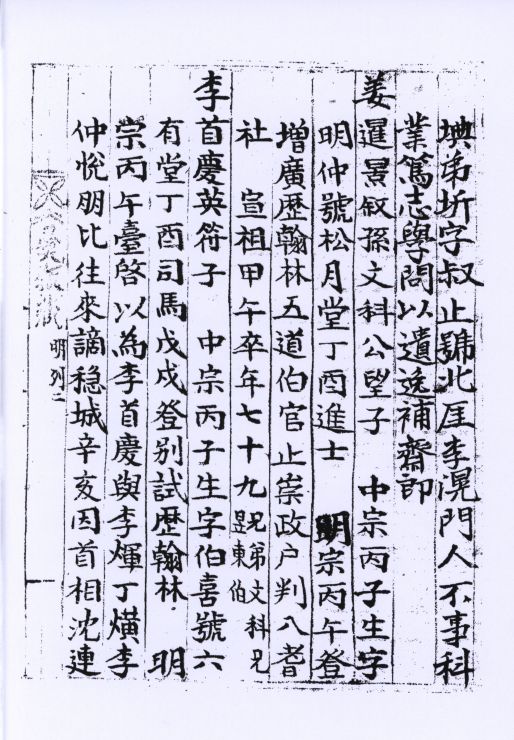 㙉弟圻字叔止號北厓李滉門人不事科
業篤志學問以遺逸補齋郎
姜暹景叙孫文科公望子 中宗丙子生字
明仲號松月堂丁酉進士 明宗丙午登
增廣歴翰林五道伯官止崇政户判入耆
社 宣祖甲午卒年七十九兄弟文科兄昱東伯
李首慶英符子 中宗丙子生字伯喜號六
有堂丁酉司馬戊戌登別試歴翰林 明
宗丙午臺啓以為李首慶與李煇丁熿李
仲悅朋比往來謫稳城辛亥因首相沈連
明列二